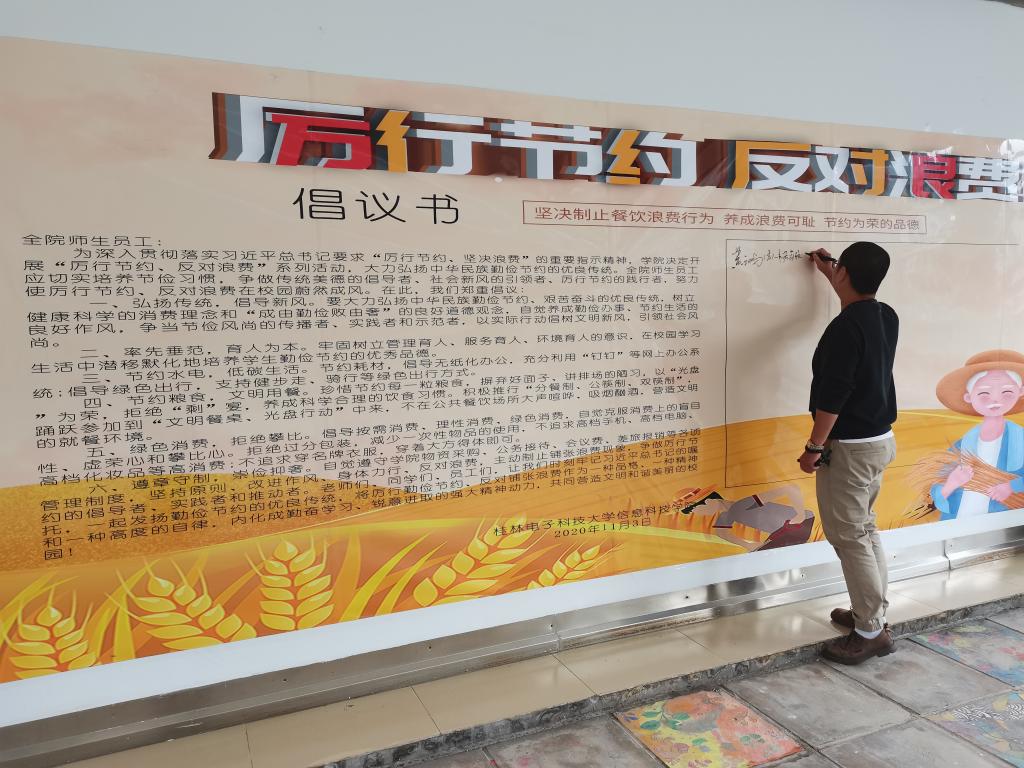 厉行节约 反对浪费
倡议书
坚决制止餐饮浪费行为 养成浪费可耻 节约为荣的品德
全院师生员工：
为深入贯彻落实习近平总书记要求“厉行节约、坚决浪费”的重要指示精神，学院决定开
展“厉行节约、反对浪费”系列活动，大力弘扬中华民族勤俭节约的优良传统。全院师生员工
应切实培养节俭习惯，争做传统美德的倡导者、社会新风的引领者、厉行节约的践行者，努力
使厉行节约、反对浪费在校园蔚然成风。在此，我们郑重倡议：
一、弘扬传统，倡导新风。要大力弘扬中华民族勤俭节约、艰苦奋斗的优良传统，树立
健康科学的消费理念和“成由勤俭败由奢”的良好道德观念，自觉养成勤俭办事、节约生活的
良好作风，争当节俭风尚的传播者、实践者和示范者，以实际行动倡树文明新风，引领社会风
尚。
二、率先垂范，育人为本。牢固树立管理育人、服务育人、环境育人的意识，在校园学习
生活中潜移默化地培养学生勤俭节约的优秀品德。
三、节约水电，低碳生活。节约耗材，倡导无纸化办公，充分利用“钉钉”等网上办公系
统；倡导绿色出行，支持健步走、骑行等绿色出行方式。
四、节约粮食，文明用餐。珍惜节约每一粒粮食，摒弃好面子、讲排场的陋习，以“光盘
”为荣，拒绝“剩”宴，养成科学合理的饮食习惯。积极推行“分餐制、公筷制、双筷制”，
踊跃参加到“文明餐桌、光盘行动”中来，不在公共餐饮场所大声喧哗，吸烟酗酒，营造文明
的就餐环境。
五、绿色消费，拒绝攀比。倡导按需消费，理性消费，绿色消费，自觉克服消费上的盲目
性、虚荣心和攀比心。拒绝过分包装，减少一次性物品的使用，不追求高档手机、高档电脑、
高档化妆品等高消费，不追求穿名牌衣服，穿着大方得体即可。
六、遵章守制，崇俭抑奢。自觉遵守学院物资采购、公务接待、会议费、差旅报销等各项
管理制度，坚持原则，改进作风，身体力行，反对浪费，主动制止铺张浪费现象，争做厉行节
约的倡导者、实践者和推动者。老师们、同学们、员工们，让我们时刻牢记习近平总书记的嘱
托，一起发扬勤俭节约的优良传统，将厉行勤俭节约、反对铺张浪费作为一种品格、一种精神
和一种高度的自律，内化成勤奋学习、锐意进取的强大精神动力，共同营造文明和谐美丽的校
园！
桂林电子科技大学信息科技学
2020年11月3日